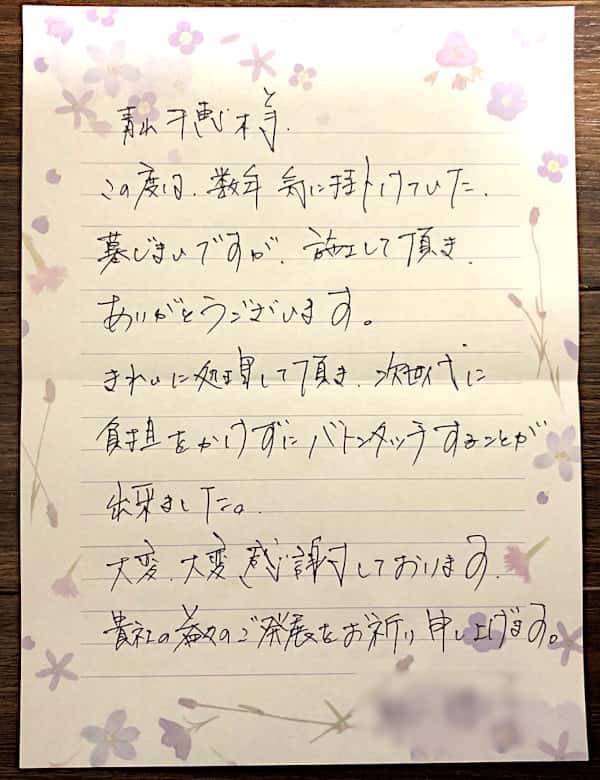 青山 千恵 様.
この度は、数年 気に掛けていた、
墓じまいですが、施工して頂き、
ありがとうございます。
きれいに処理して頂き、次世代に
負担をかけずにバトンタッチすることが
出来ました。
大変、大変、感謝しております。
貴社の益々のご発展をお祈り申し上げます。